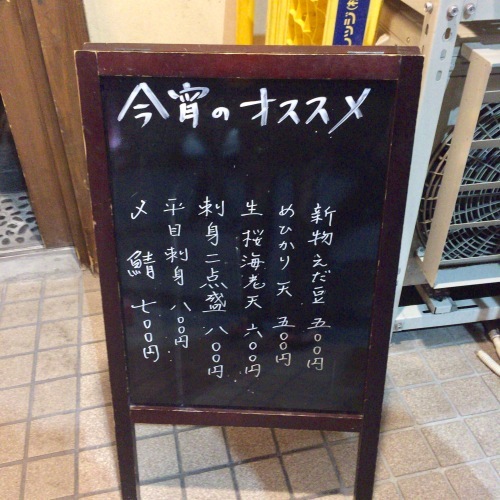 今宵のオススメ
新物えだ豆 五〇〇円
めひかり天 五〇〇円
生桜海老天 六〇〇円
刺身二点盛 八〇〇円
平目刺身 八〇〇円
〆鯖 七〇〇円